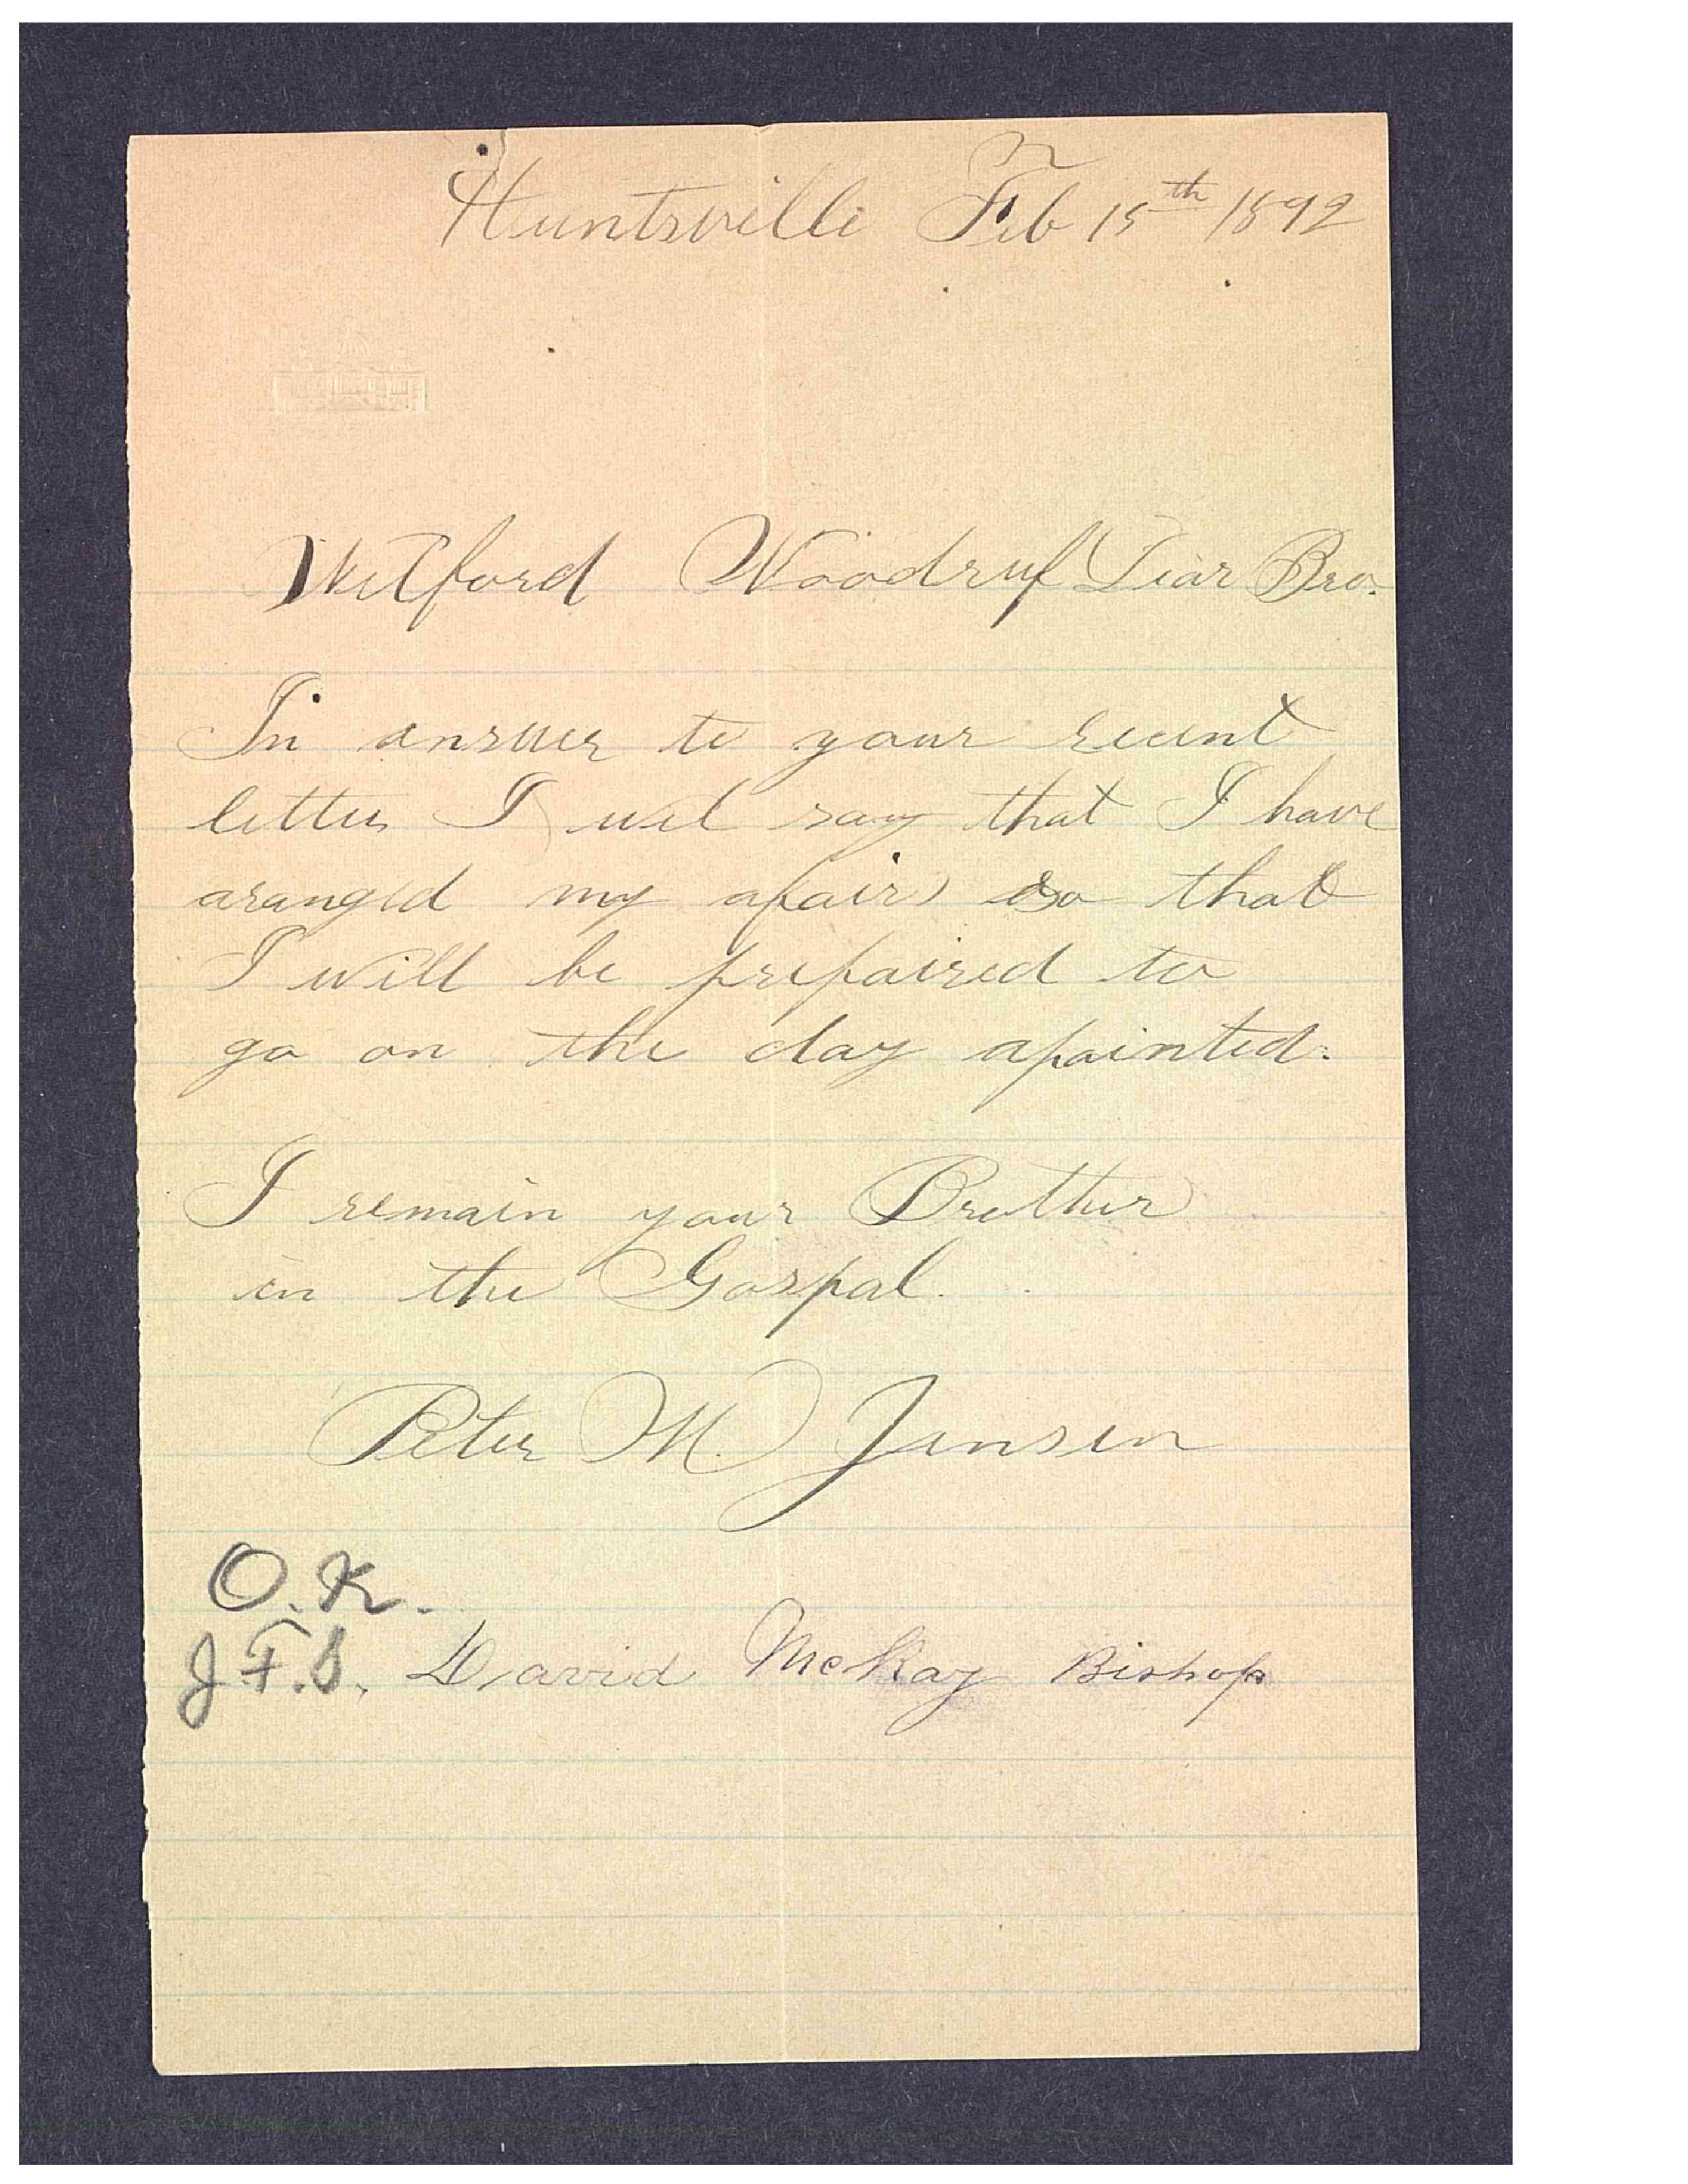 Huntsville Feb 15th 1892
Wilford Woodruf Dear Bro.
In answer to your recent
letter I wil say that I have
aranged my afairs so that
I will be prepaired to
go on the day apointed.
I remain your Brother
in the Gospal.
Peter M. Jensen
O.K.
J.F.S. David McKay Bishop